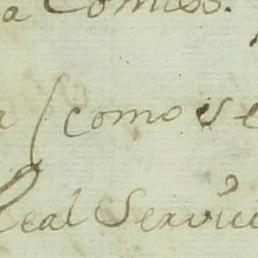 a Comiss.
a (como se
Real Servici